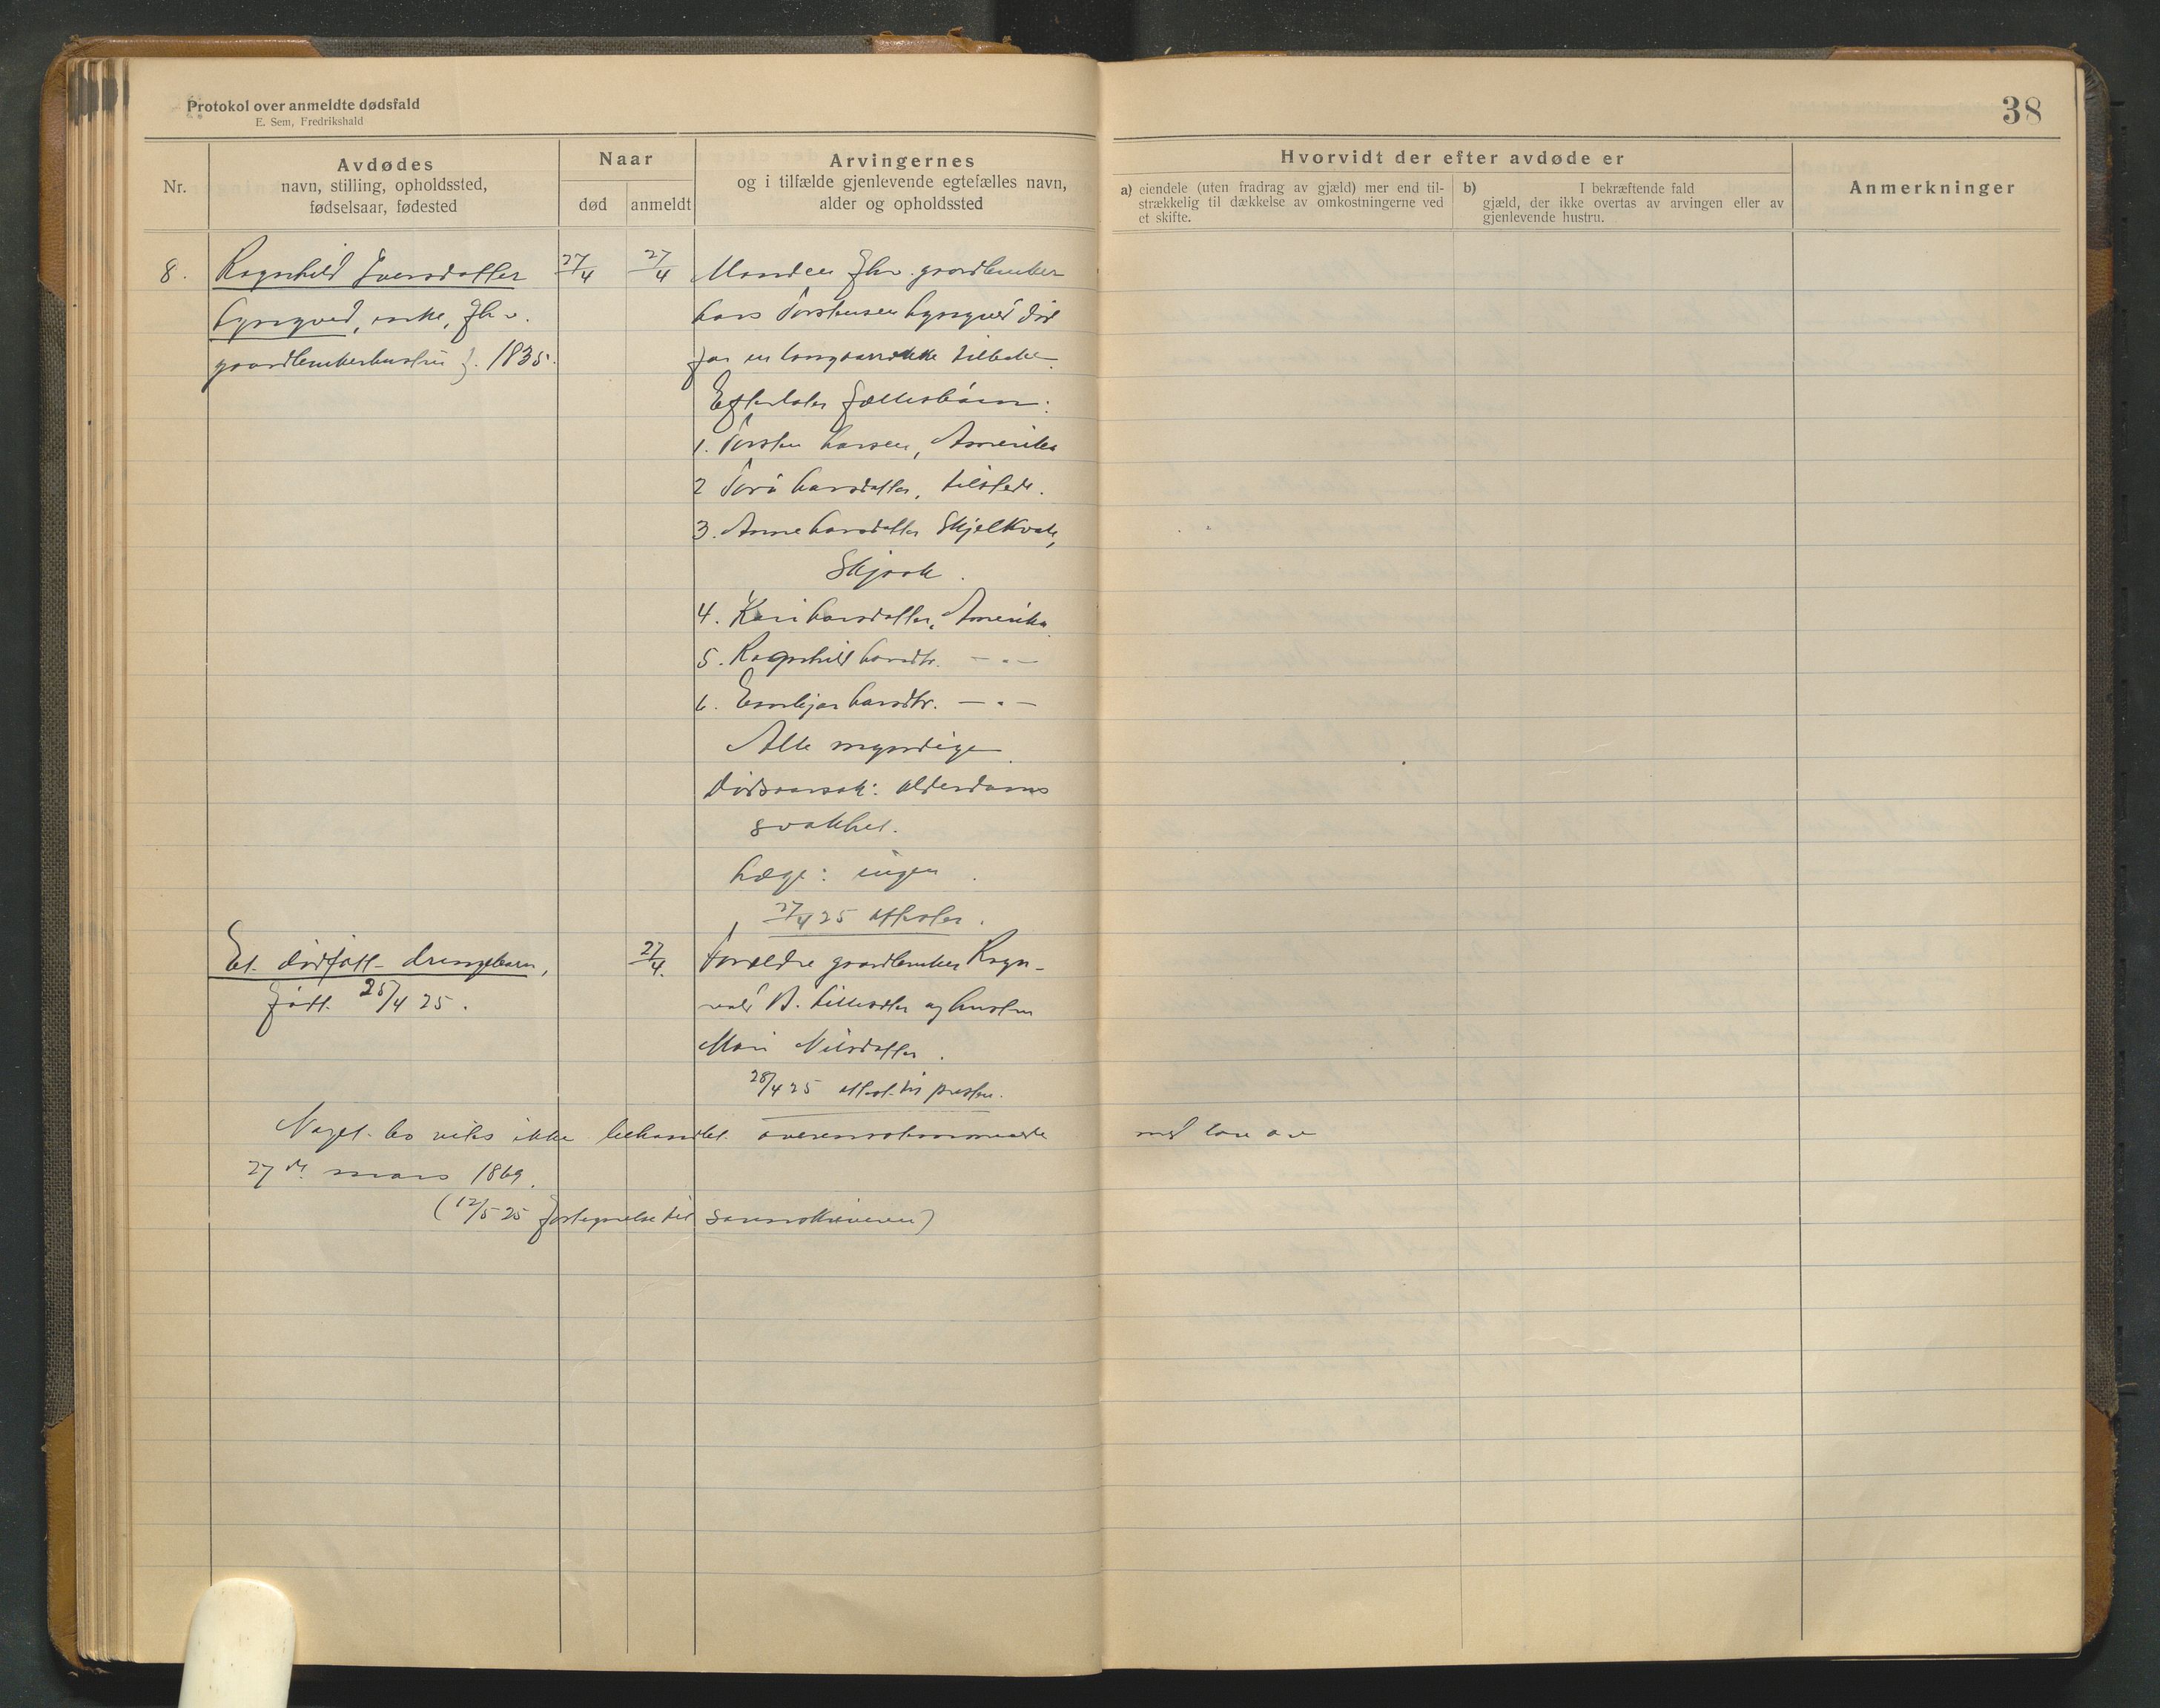 Protokol over anmeldte dødsfald
E. Sem, Fredrikshald
38
Nr.
Avdødes
navn, stilling, opholdssted,
fødselsaar, fødested
Naar
død
anmeldt
Arvingernes
og i tilfælde gjenlevende egtefælles navn,
alder og opholdssted
Hvorvidt der efter avdøde er
a) eiendele (uten fradrag av gjæld) mer end til-
strækkelig til dækkelse av omkostningerne ved
et skifte.
b) I bekræftende fald
gjæld, der ikke overtas av arvingen eller av
gjenlevende hustru.
Anmerkninger
8. Ragnhild Iversdatter 27/4 27/4 Manden fhv. gaardbruker
enke, fhv. Lars Torstensen død
gaardbrukerhustru f. 1835. for en tilbake.
Efterlater fællesbarn:
1. Torsten Larsen, Amerika
2 Tora Larsdatter, tilstede.
3. Anne Larsdatter Skjelkvale,
Skjaak.
4. Kari Larsdatter, Amerika
5. Ragnhild Larsdtr. — " —
6. Larsdtr. — " —
Alle myndige
Dødsaarsak: alderdoms
svakhet.
Læge: ingen.
27/4 25 attester.
Et dødfødt drengebarn, 27/4. Forældre gaardbruker Ragn-
født 25/4 25. vald og hustru
Mari Nilsdatter.
28/4 25 attest til presten.
Noget bo vites ikke behandlet overensstemmende med lov av
27de mars 1869.
(12/5 25 fortegnelse til sorenskriveren)